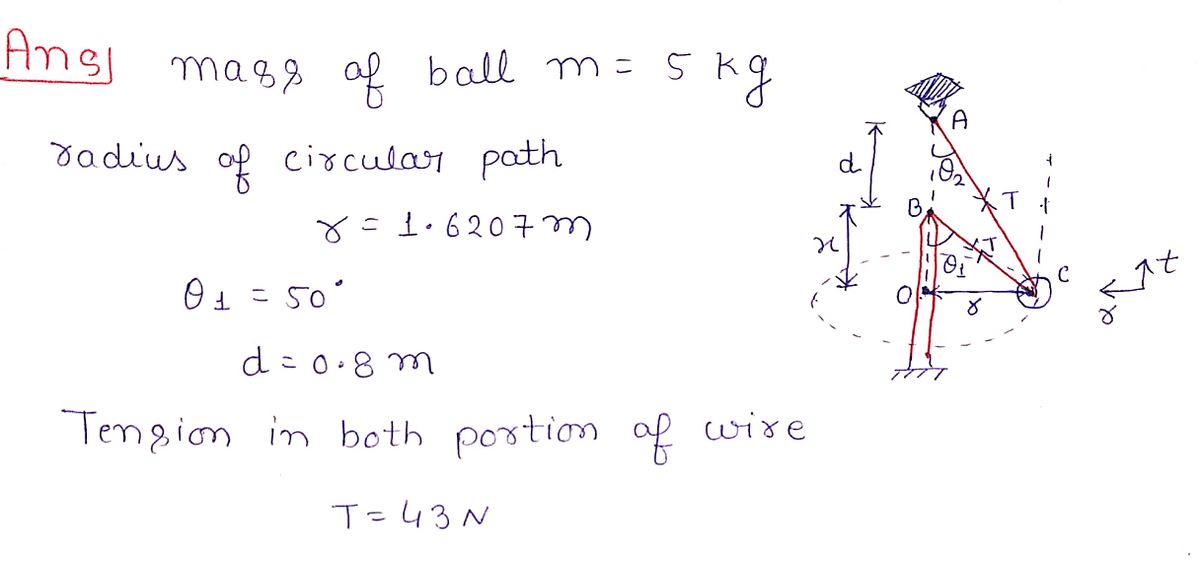 Ans] mass of ball m = 5 kg
radius of circular path
r = 1.6207 m
θ1 = 50°
d = 0.8 m
Tension in both portion of wire
T = 43 N
A
d
θ2
T
B
x
T
θ1
C
t
O
r
r